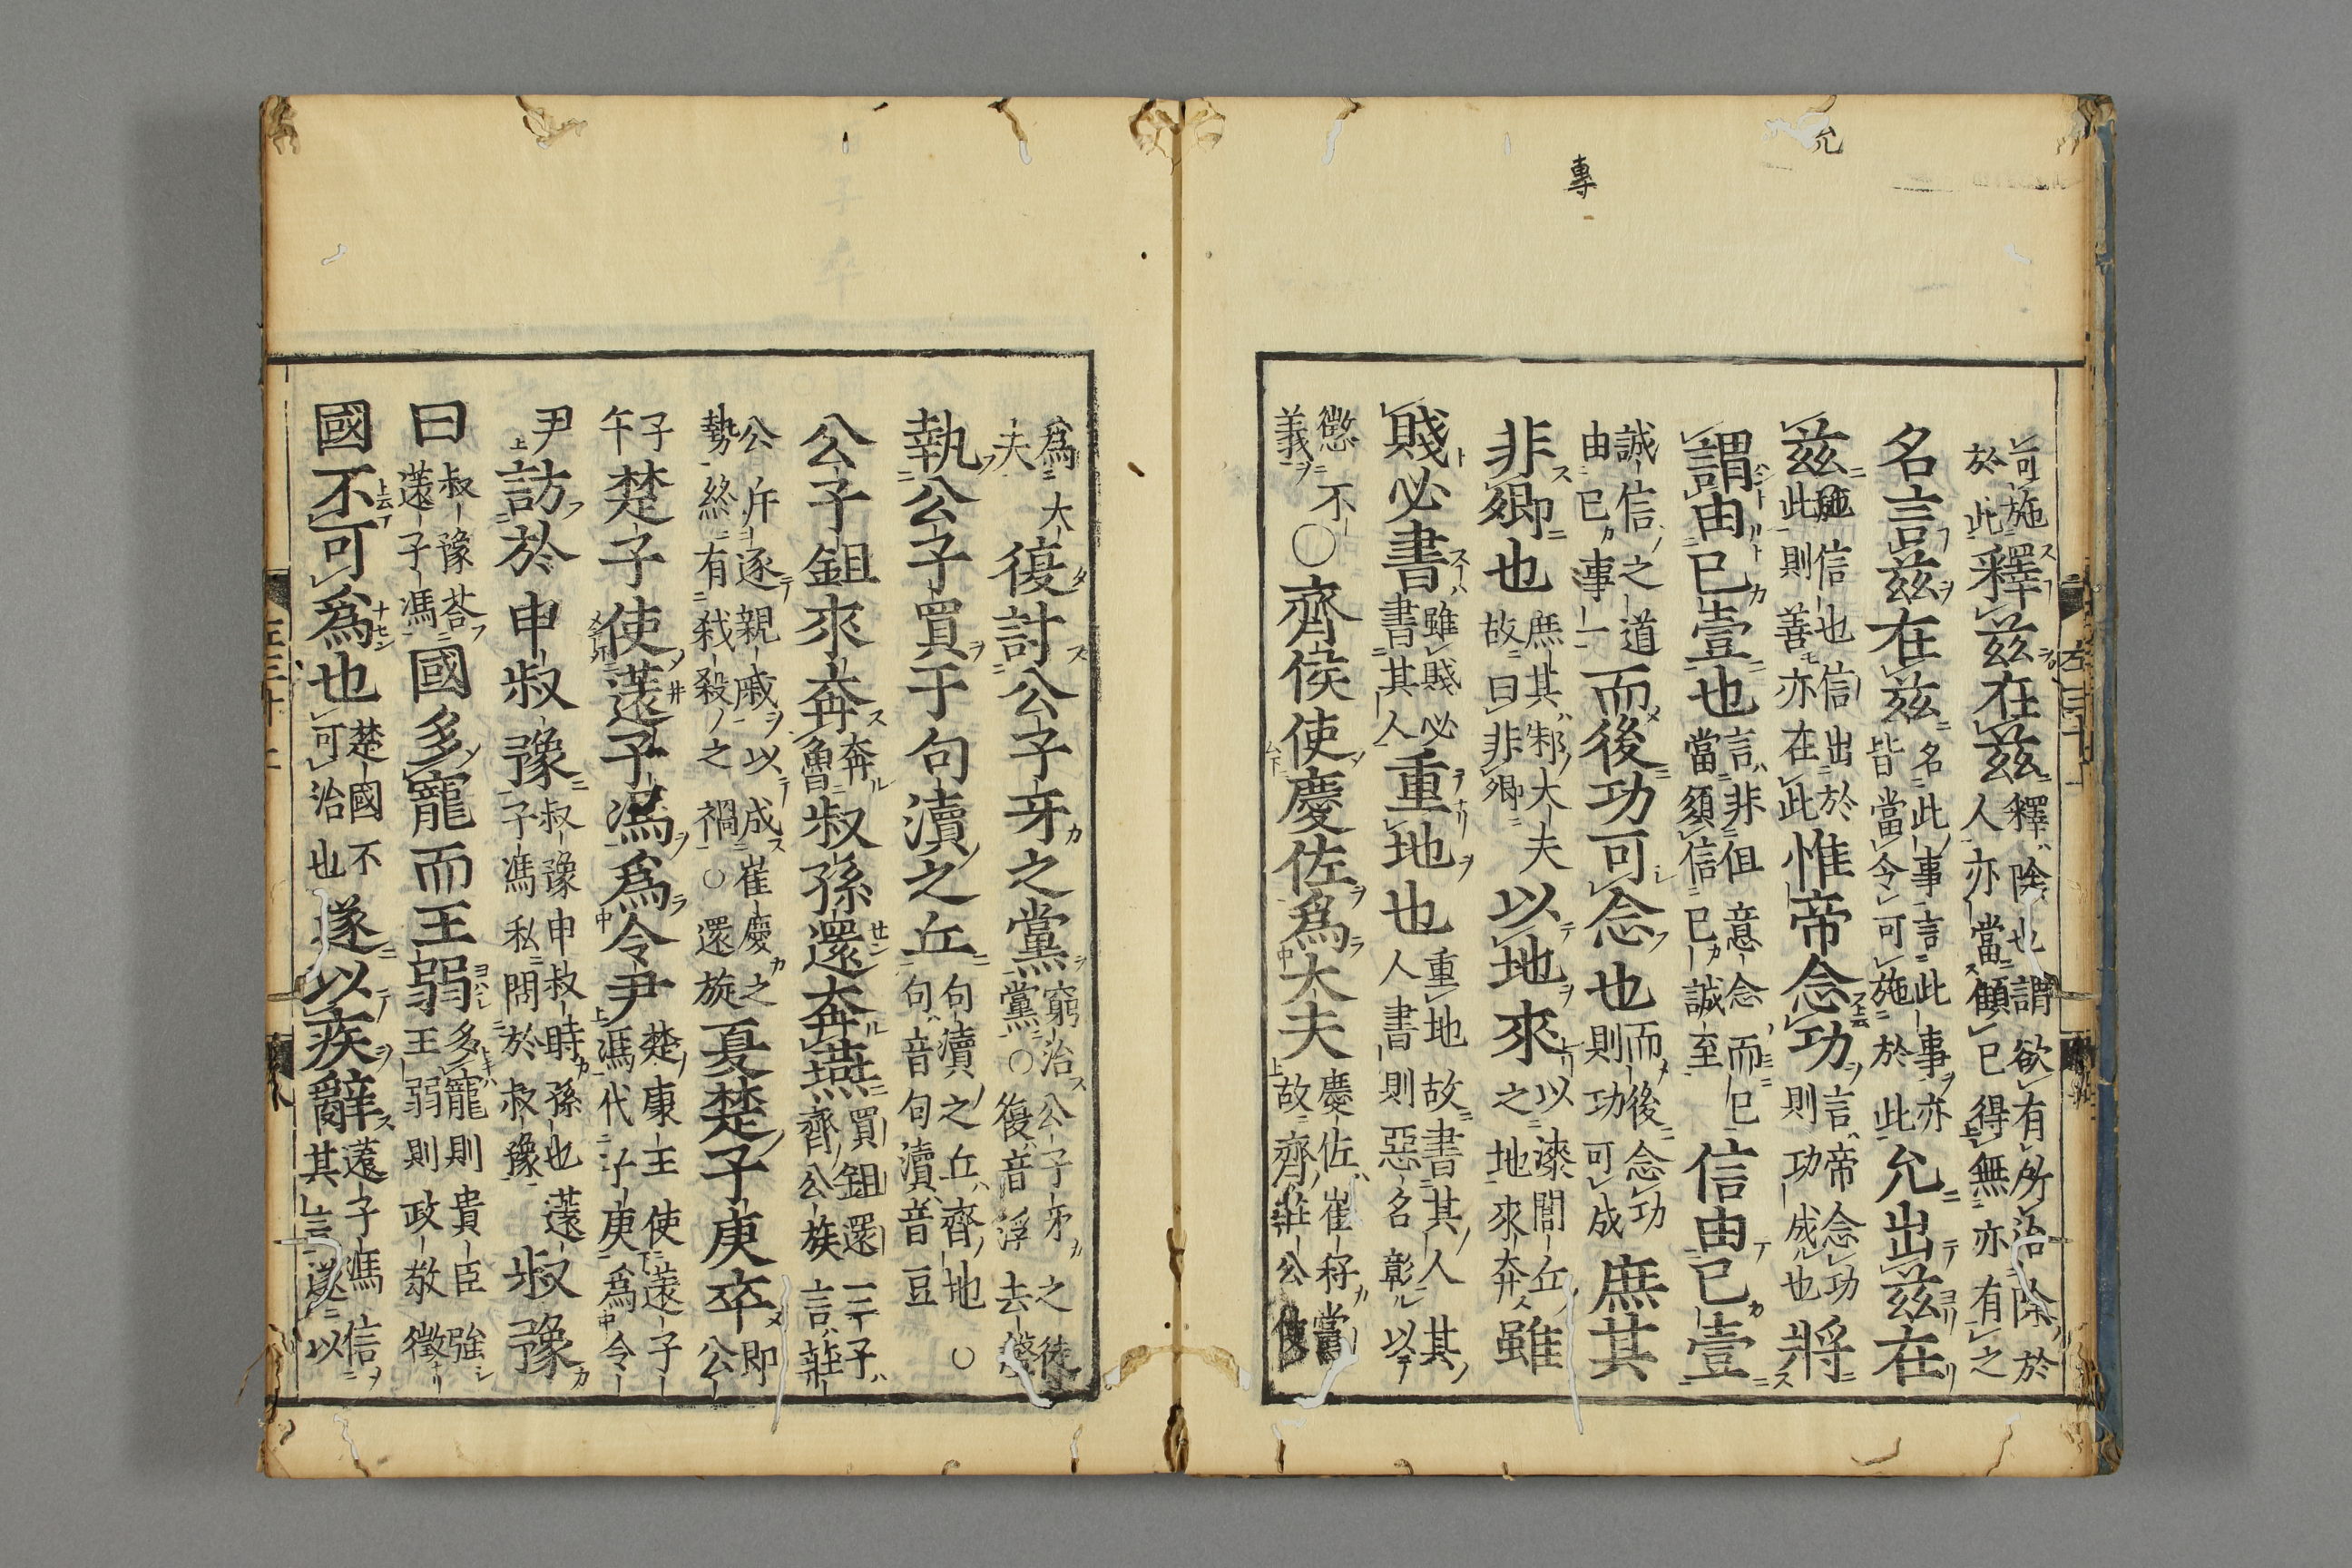 可施於此釋茲在茲釋除也謂欲有所治除於人亦當顧已得無亦有之
名言茲在茲名此事言此事亦皆當令可施於此允出茲在
茲施信也信出於此則善亦在此惟帝念功言帝念功則功成也將
謂由已壹也言非但意念而已當須信已誠至信由已壹
誠信之道由已事一而後功可念也而後念功則功可成庶其
非卿也庶其邾大夫故曰非卿以地來以漆閭丘之地來奔雖
賤必書雖賤必書其人重地也重地故書其人其人書則惡名彰以
懲不義○齊侯使慶佐爲大夫慶佐崔杼黨故齊莊公使
爲大夫復討公子牙之黨窮治公子牙之徒黨○復音浮去聲
執公子買于句瀆之丘句瀆之丘齊地○句音句瀆音豆
公子鉏來奔奔魯叔孫還奔燕買鉏還三子齊公族言莊
公斥逐親戚以成崔慶之勢終有弒殺之禍○還旋夏楚子庚卒即公
子午楚子使薳子馮爲令尹楚康王使薳子馮代子庚爲令
尹訪於申叔豫叔豫申叔時孫也薳子馮私問於叔豫叔豫
曰叔豫荅薳子馮國多寵而王弱多寵則貴臣強王弱則政敎微
國不可爲也楚國不可治也遂以疾辭薳子馮信其言遂以
專
允